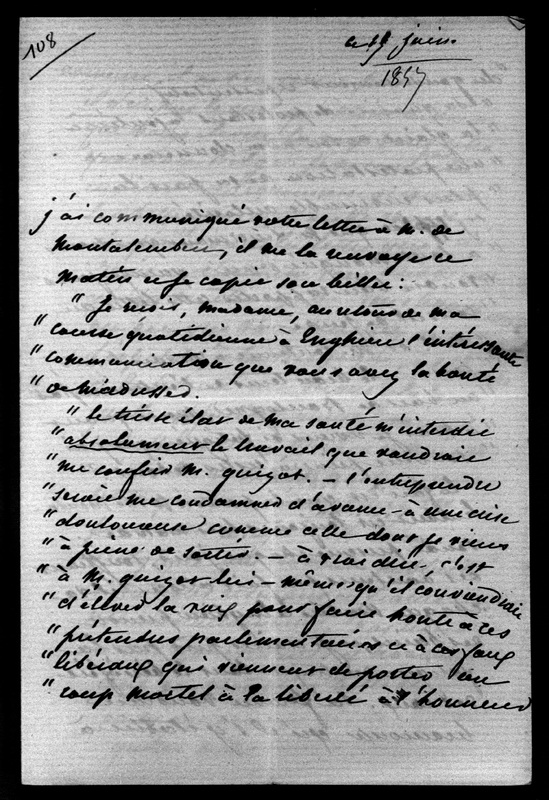 108
ce 19 juin
1857
j'ai communiqué votre lettre à M. de
Montalembert, il me la renvoye ce
matin et je copie son billet:
" Je reçois, madame, au retour de ma
" course quotidienne à Enghien l'intéressante
" communication que vous avez la bonté
" de m'adresser.
" le triste état de ma santé m'interdit
" absolument le travail que voudrait
" me confier M. guizot. – l'entreprendre
" serait me condamner d'avance à une crise
" douloureuse comme celle dont je viens
" à peine de sortir. – à vrai dire, c'est
" à M. guizot lui-même qu'il conviendrait
" d'élever la voix pour faire honte à ces
" prétendus parlementaires et à ces faux
" libéraux qui viennent de porter un
" coup mortel à la liberté à l'honneur